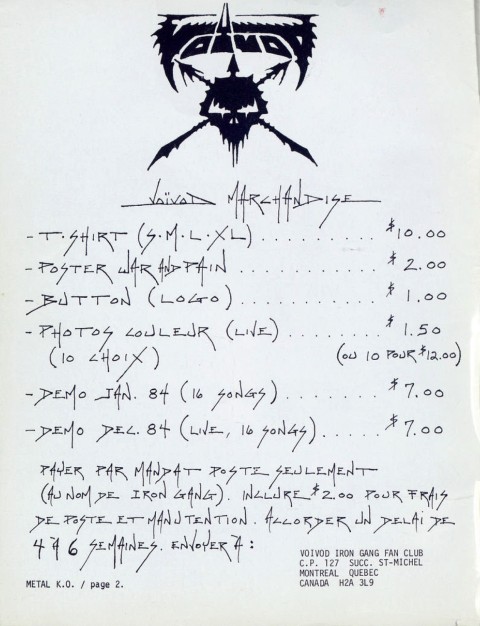 VOIVOD
VOÏVOD MARCHANDISE
- T-SHIRT (S·M·L·XL) . . . . . . . . $10.00
- POSTER WAR AND PAIN . . . . . . . . . $2.00
- BUTTON (LOGO) . . . . . . . . . $1.00
- PHOTOS COULEUR (LIVE) . . . . . . . $1.50
(10 CHOIX) (OU 10 POUR $12.00)
- DEMO JAN. 84 (16 SONGS) . . . . . . . $7.00
- DEMO DEC. 84 (LIVE, 16 SONGS) . . . . . . $7.00
PAYER PAR MANDAT POSTE SEULEMENT
(AU NOM DE IRON GANG). INCLURE $2.00 POUR FRAIS
DE POSTE ET MANUTENTION. ACCORDER UN DELAI DE
4 À 6 SEMAINES. ENVOYER À :
VOIVOD IRON GANG FAN CLUB
C.P. 127 SUCC. ST-MICHEL
MONTREAL QUEBEC
CANADA H2A 3L9
METAL K.O. / page 2.